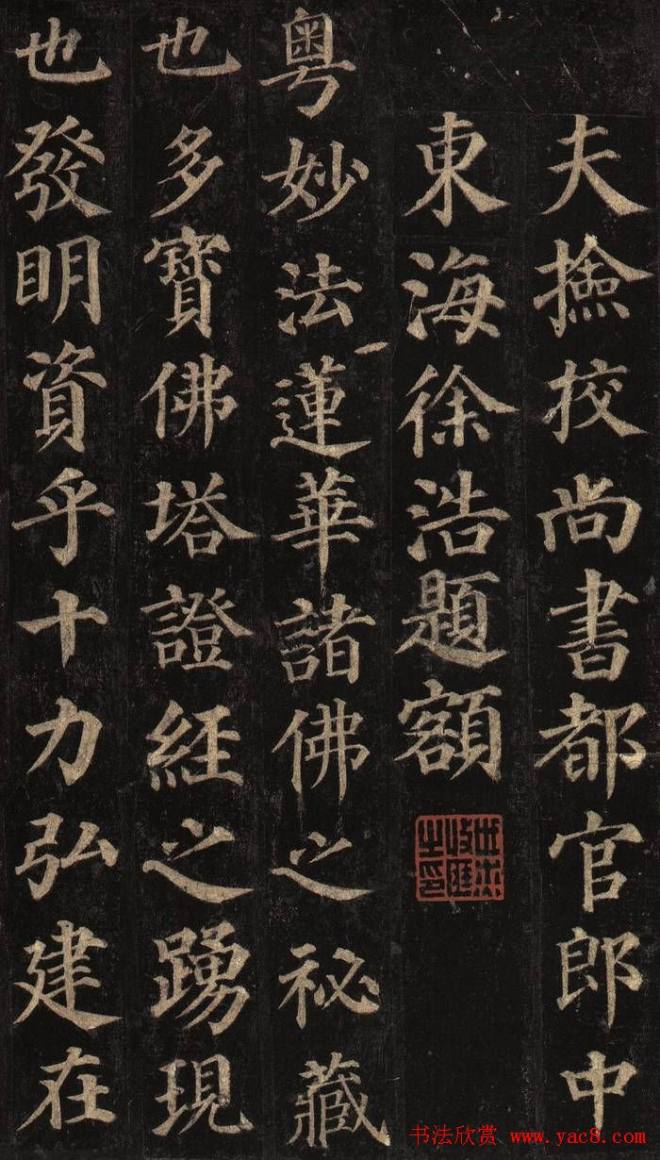 夫撿挍尚書都官郎中
東海徐浩題額
粵妙法蓮華諸佛之祕藏
也多寳佛塔證經之踴現
也發明資乎十力弘建在
书法欣赏 www.yac8.com